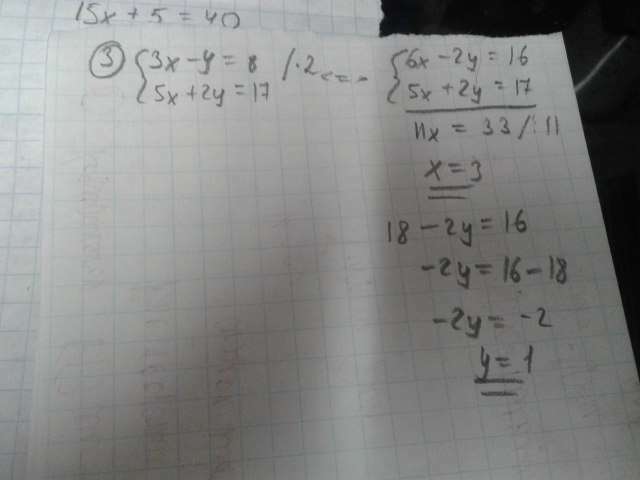 15x + 5 = 40
③ {3x - y = 8 /·2 <=>
{5x + 2y = 17
{6x - 2y = 16
{5x + 2y = 17
11x = 33 /:11
x = 3
18 - 2y = 16
-2y = 16 - 18
-2y = -2
y = 1